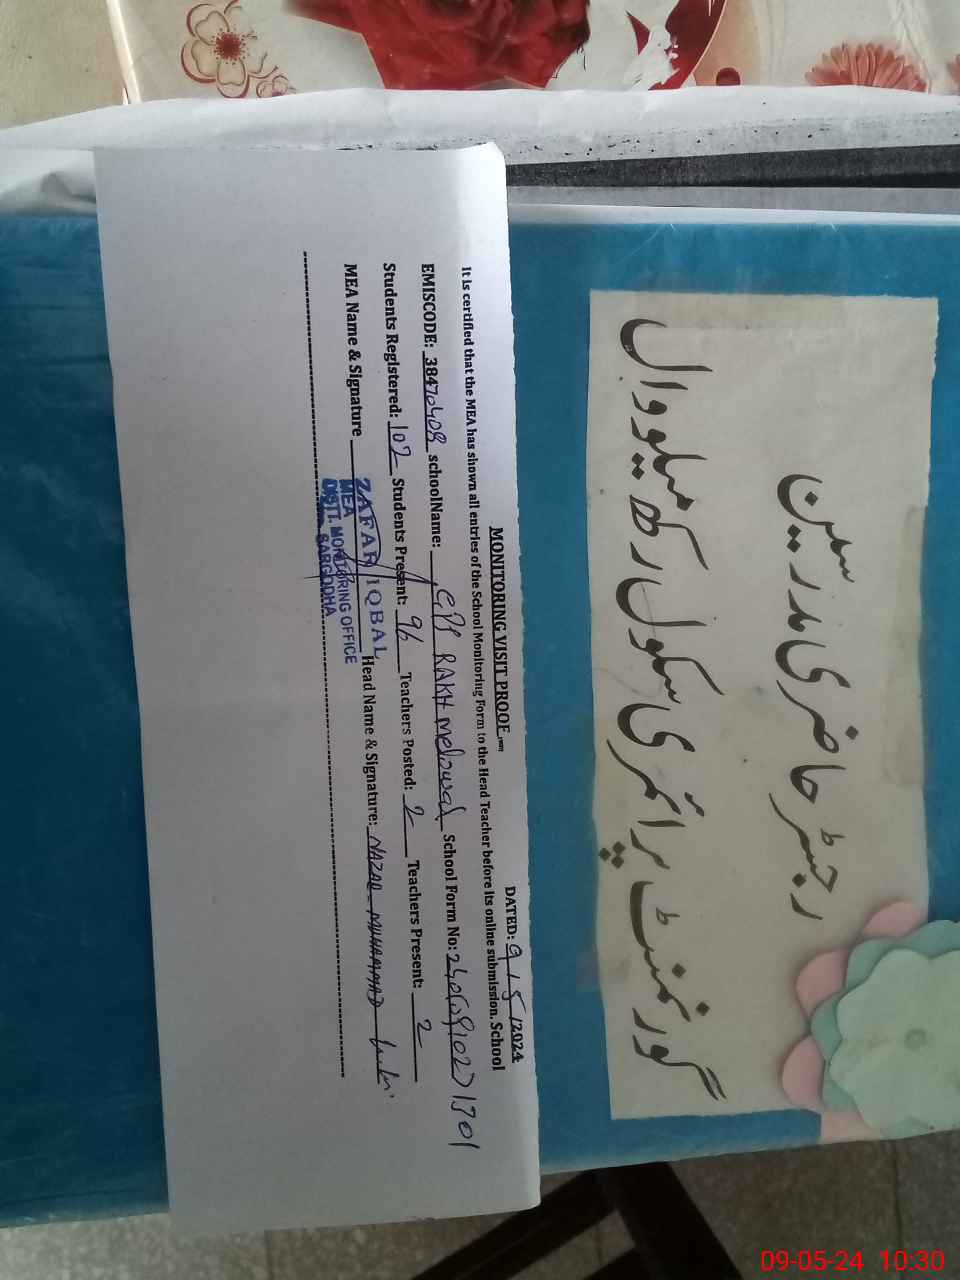 MONITORING VISIT PROOF
DATED: 9 / 5 /2024
It is certified that the MEA has shown all entries of the School Monitoring Form to the Head Teacher before its online submission. School
EMISCODE: 38470408 schoolName: GPS RAKH melowal School Form No:
Students Registered: 102 Students Present: 96 Teachers Posted: 2 Teachers Present: 2
MEA Name & Signature Head Name & Signature: NAZAR MUHAMMAD
ZAFAR IQBAL
MEA
DISTT. MONITORING OFFICE
SARGODHA
رجسٹر حاضری مدرسین
گورنمنٹ پرائمری سکول رکھ میلووال
09-05-24 10:30